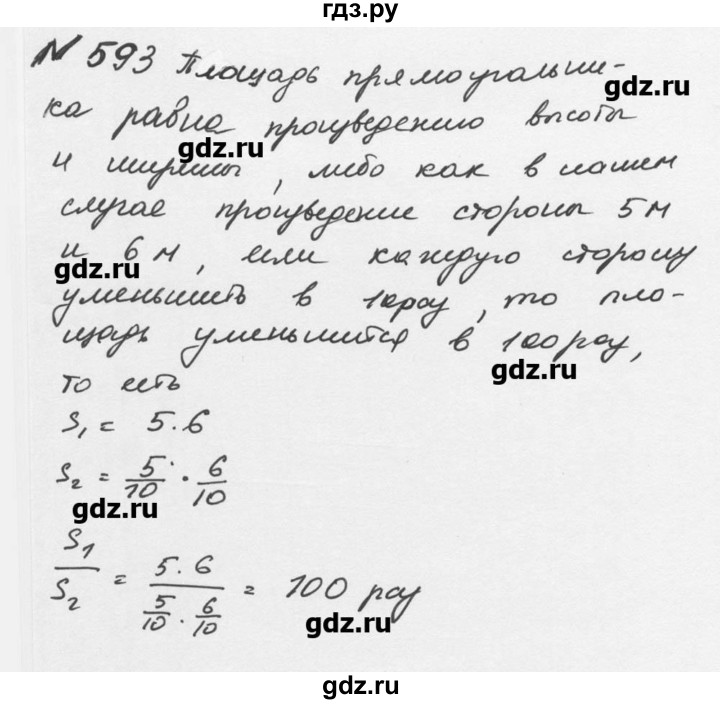 гдз.ру
N 593 Площадь прямоугольни-
гдз.ru
ка равна произведению высоты
gdz.ru
и ширины, либо как в нашем
случае произведение стороны 5м
и 6м, если каждую сторону
gdz.ru
уменьшить в 10 раз, то пло-
щадь уменьшится в 100 раз,
gdz.ru
то есть
S₁ = 5·6
S₂ = 5/10 · 6/10
gdz.ru
S₁/S₂ = 5·6 / (5/10 · 6/10) = 100 раз
gdz.ru
gdz.ru